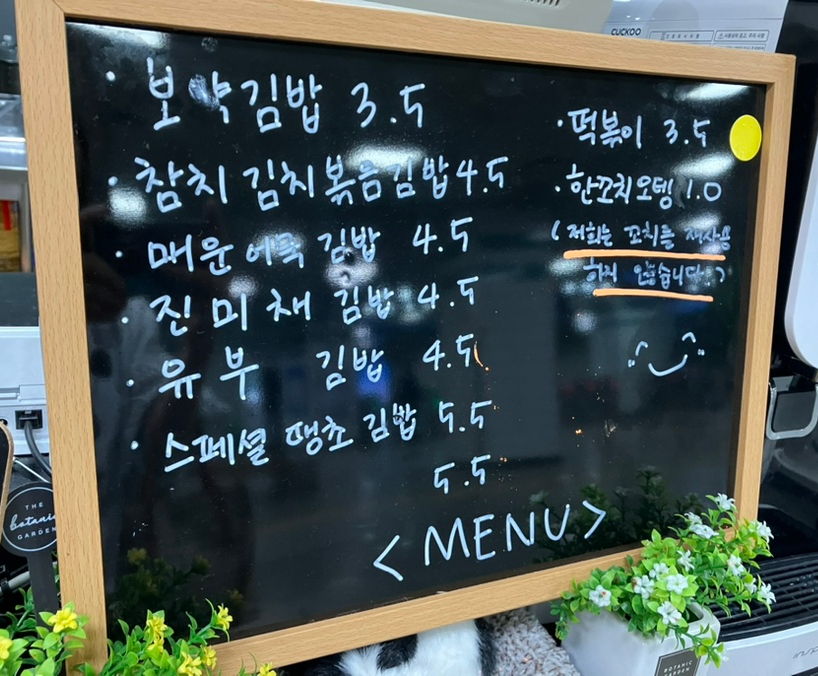 · 보약김밥 3.5
· 참치김치볶음김밥 4.5
· 매운어묵 김밥 4.5
· 진미채 김밥 4.5
· 유부 김밥 4.5
· 스페셜 땡초 김밥 5.5
5.5
<MENU>
· 떡볶이 3.5
· 한꼬치오뎅 1.0
(저희는 꼬치를 재사용
하지 않습니다.)
CUCKOO
THE
botanic
GARDEN
BOTANIC
GARDEN